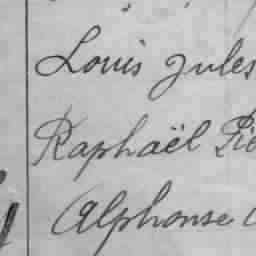 Louis Jules
Raphaël Pie
Alphonse